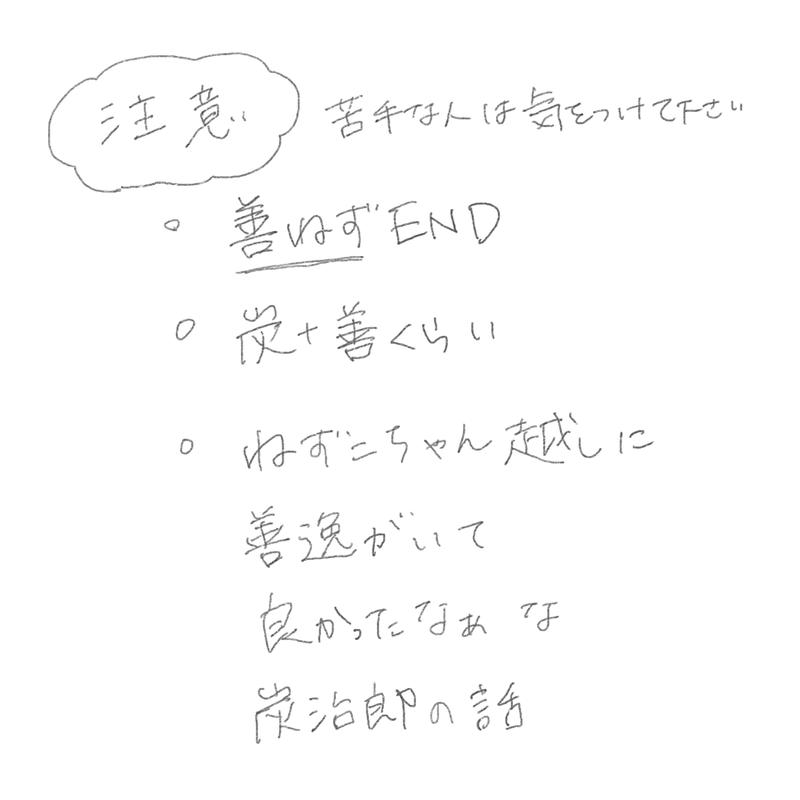 注意 苦手な人は気をつけて下さい
○ 善ねずEND
○ 炭+善くらい
○ ねずこちゃん越しに
善逸がいて
良かったなぁ な
炭治郎の話